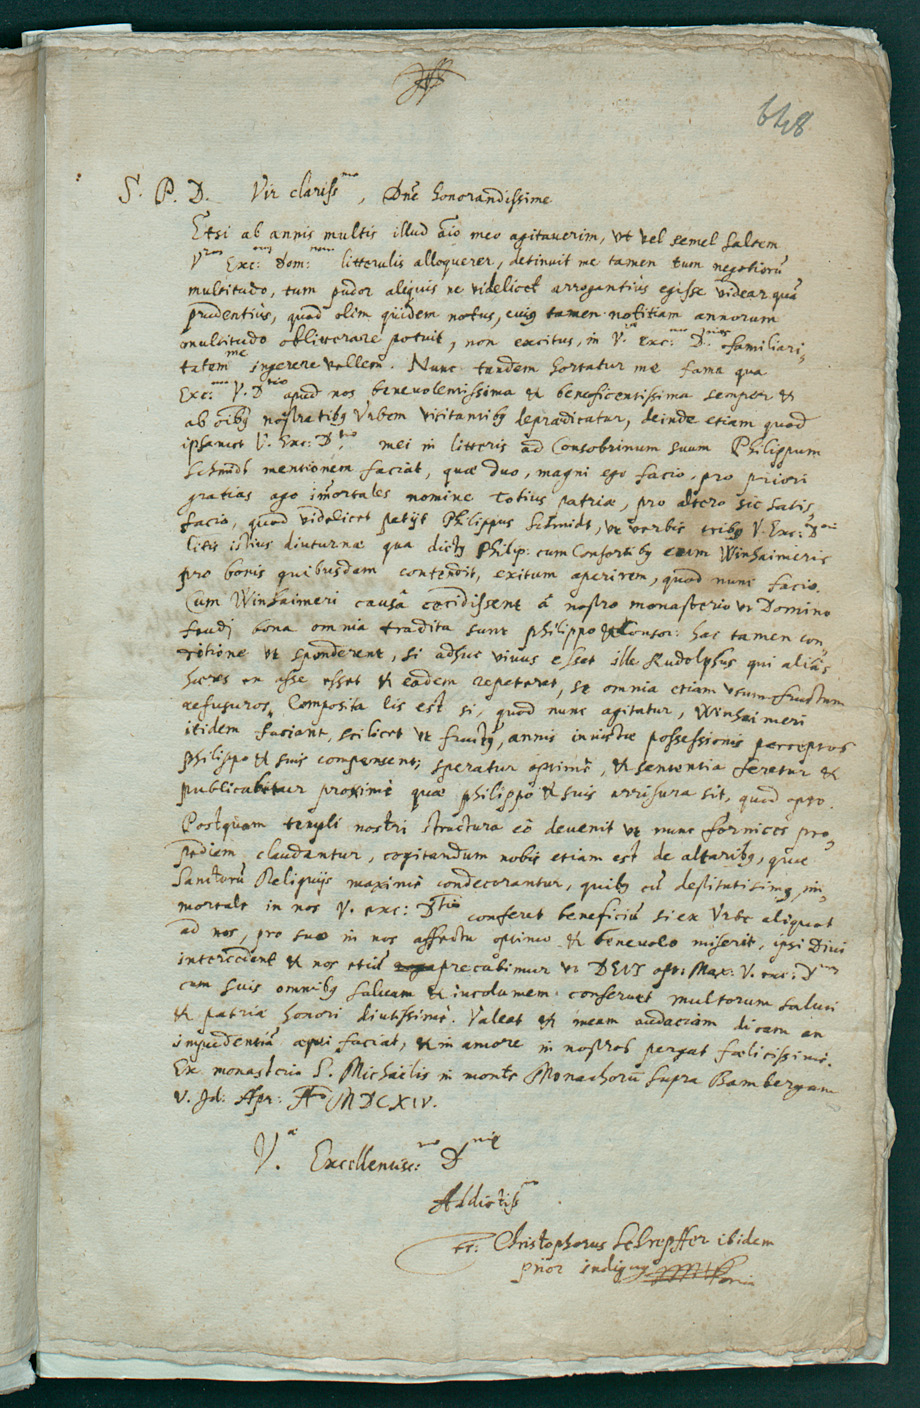 648
S. P. D. Vir clariss.mo, Dne honorandissime
Etsi ab annis multis illud aio meo agitaverim, ut vel semel saltem
Vram Exc: Dom:nem litterulis alloquerer, detinuit me tamen tum negotioru
multitudo, tum pudor aliquis ne videlicet arrogantius egisse videar qua
prudentius, quod olim quidem notus, cuiq tamen notitiam annorum
multitudo oblitterare potuit, non excitus, in V. exc: D. familiari-
tatem me ingerere vellem. Nunc tandem hortatur me fama qua
Exc: V. Dtio apud nos benevolentissima et beneficentissima semper et
ab oibq nostratibq Urbem visitantibq depraedicatur, deinde etiam quod
ipsamet V. Exc: Dtio mei in litteris ad Consobrinum suum Philippum
Schmidt mentionem faciat, quae duo, magni ego facio, pro priori
gratias ago imortales nomine totius patriae, pro altero sic satis-
facio, quod videlicet petijt Philippus Schmidt, ut verbis tribq V. Exc: D
litis istius diuturnae qua dictq Philip: cum Consortibq cum Winhaimeris
pro bonis quibusdam contendit, exitum aperirem, quod nunc facio.
Cum Winhaimeri causa cecidissent a nostro monasterio ut Domino
feudj bona omnia tradita sunt philippo et Consor: hac tamen con-
ditione ut sponderent, si adhuc vivus esset ille Rudolphus qui alias
haeres ex asse esset et eadem repeteret, se omnia etiam usumfructum
refusuros. Composita lis est si, quod nunc agitatur, Winhaimeri
itidem faciant, scilicet ut fructq, annis iniustae possessionis perceptos
Philippo et suis compensent; speratur optime, et sententia feretur et
publicabitur proxime quae philippo et suis arrisura sit, quod opto.
Postquam templi nostri structura eo devenit ut nunc fornices pro-
pediem claudantur, cogitandum nobis etiam est de altaribq, quae
Sanctoru Reliquijs maxime condecorantur, quibq cu destitutissimq, im-
mortale in nos V. exc: Dtio conferet beneficiu si ex Urbe aliquot
ad nos, pro suo in nos affectu optimo et benevolo miserit, ipsi Divi
intercedent et nos etia precabimur ut DEUS opt: Max: V. exc: D
cum suis omnibq salvam et incolumem conservet multorum saluti
et patriae honori diutissime. Valeat et meam audaciam dicam an
impudentia aequi faciat, et in amore in nostros pergat foelicissime.
Ex monasterio S. Michaelis in monte Monachoru supra Bambergam
V. Jd: Apr: Ao MDCXIV.
V. Excellentiss: Dnis
Addictiss
Fr: Christophorus Schrepffer ibidem
prior indignq